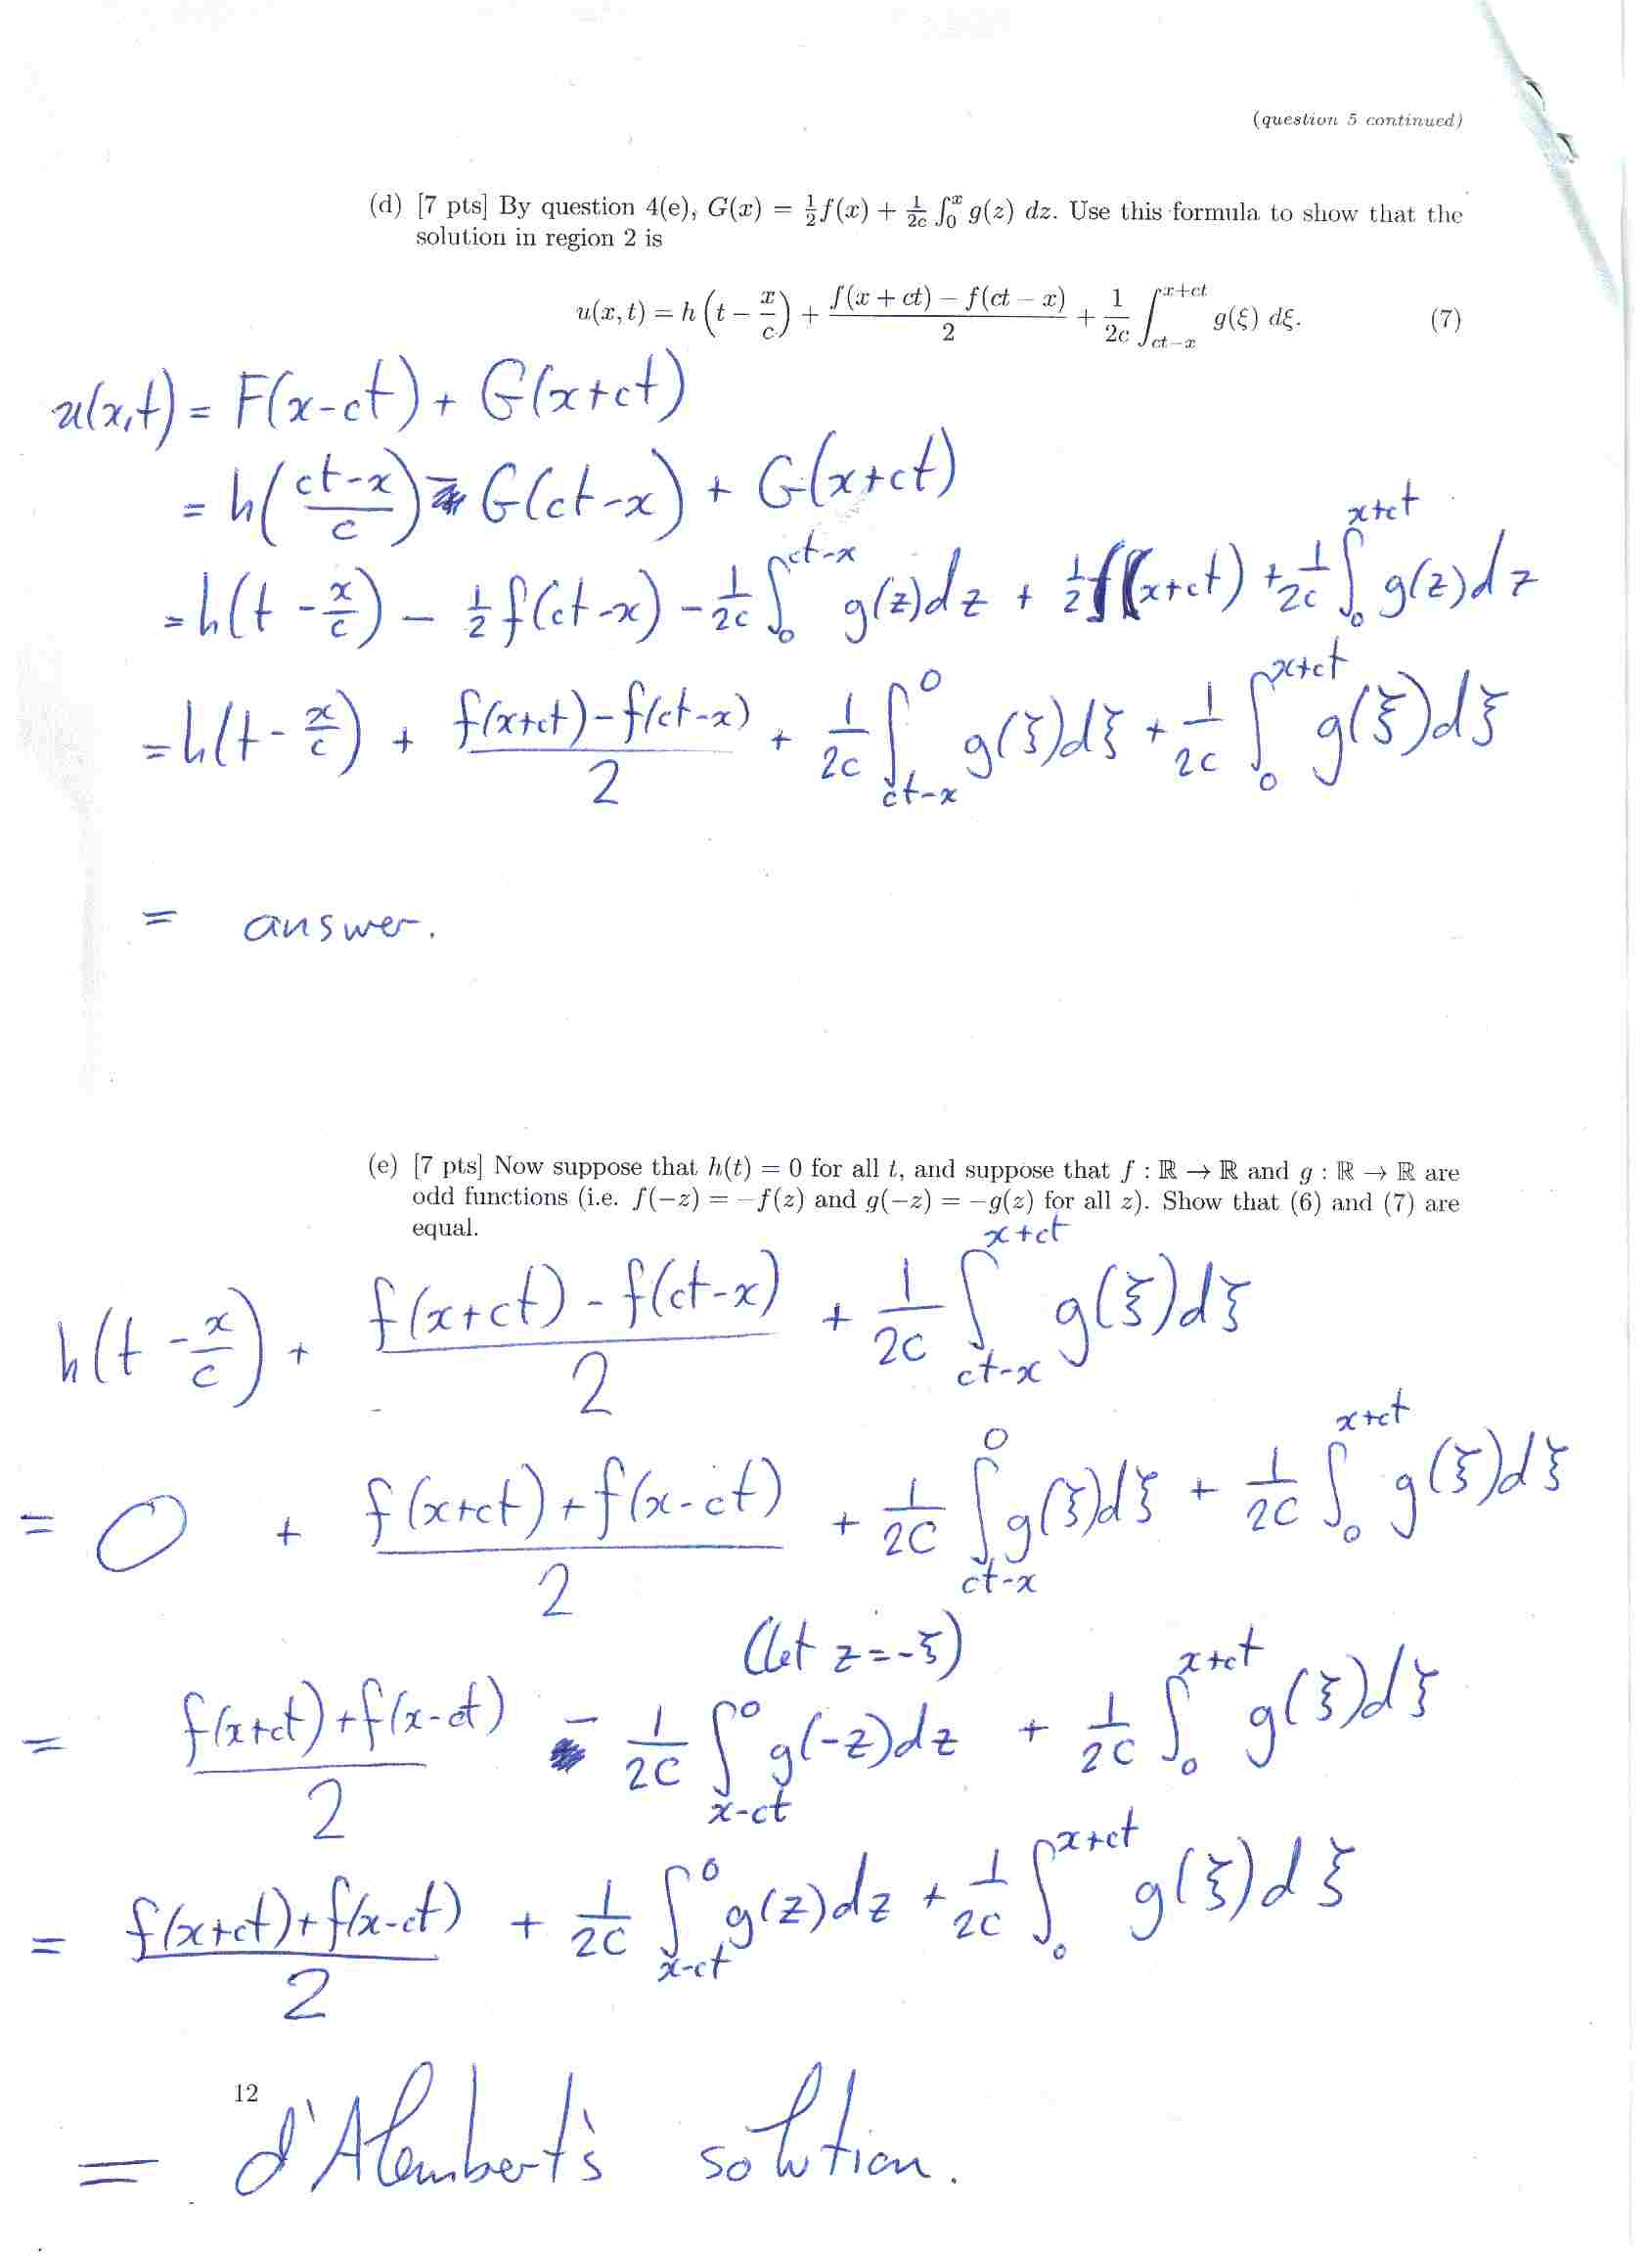 (question 5 continued)
(d) [7 pts] By question 4(e), G(x) = ½f(x) + 1/2c ∫₀ˣ g(z) dz. Use this formula to show that the
solution in region 2 is
u(x, t) = h (t − x/c) + (f(x + ct) − f(ct − x))/2 + 1/2c ∫_{ct−x}^{x+ct} g(ξ) dξ. (7)
u(x,t) = F(x-ct) + G(x+ct)
= h((ct-x)/c) - G(ct-x) + G(x+ct)
= h(t - x/c) - 1/2 f(ct-x) - 1/2c ∫_0^{ct-x} g(z)dz + 1/2 f(x+ct) + 1/2c ∫_0^{x+ct} g(z)dz
= h(t - x/c) + (f(x+ct) - f(ct-x))/2 + 1/2c ∫_{ct-x}^0 g(ξ)dξ + 1/2c ∫_0^{x+ct} g(ξ)dξ
= answer.
(e) [7 pts] Now suppose that h(t) = 0 for all t, and suppose that f : ℝ → ℝ and g : ℝ → ℝ are
odd functions (i.e. f(−z) = −f(z) and g(−z) = −g(z) for all z). Show that (6) and (7) are
equal.
h(t - x/c) + (f(x+ct) - f(ct-x))/2 + 1/2c ∫_{ct-x}^{x+ct} g(ξ)dξ
= 0 + (f(x+ct) + f(x-ct))/2 + 1/2c ∫_{ct-x}^0 g(ξ)dξ + 1/2c ∫_0^{x+ct} g(ξ)dξ
(let z = -ξ)
= (f(x+ct) + f(x-ct))/2 - 1/2c ∫_{x-ct}^0 g(-z)dz + 1/2c ∫_0^{x+ct} g(ξ)dξ
= (f(x+ct) + f(x-ct))/2 + 1/2c ∫_{x-ct}^0 g(z)dz + 1/2c ∫_0^{x+ct} g(ξ)dξ
12
= d'Alembert's solution.